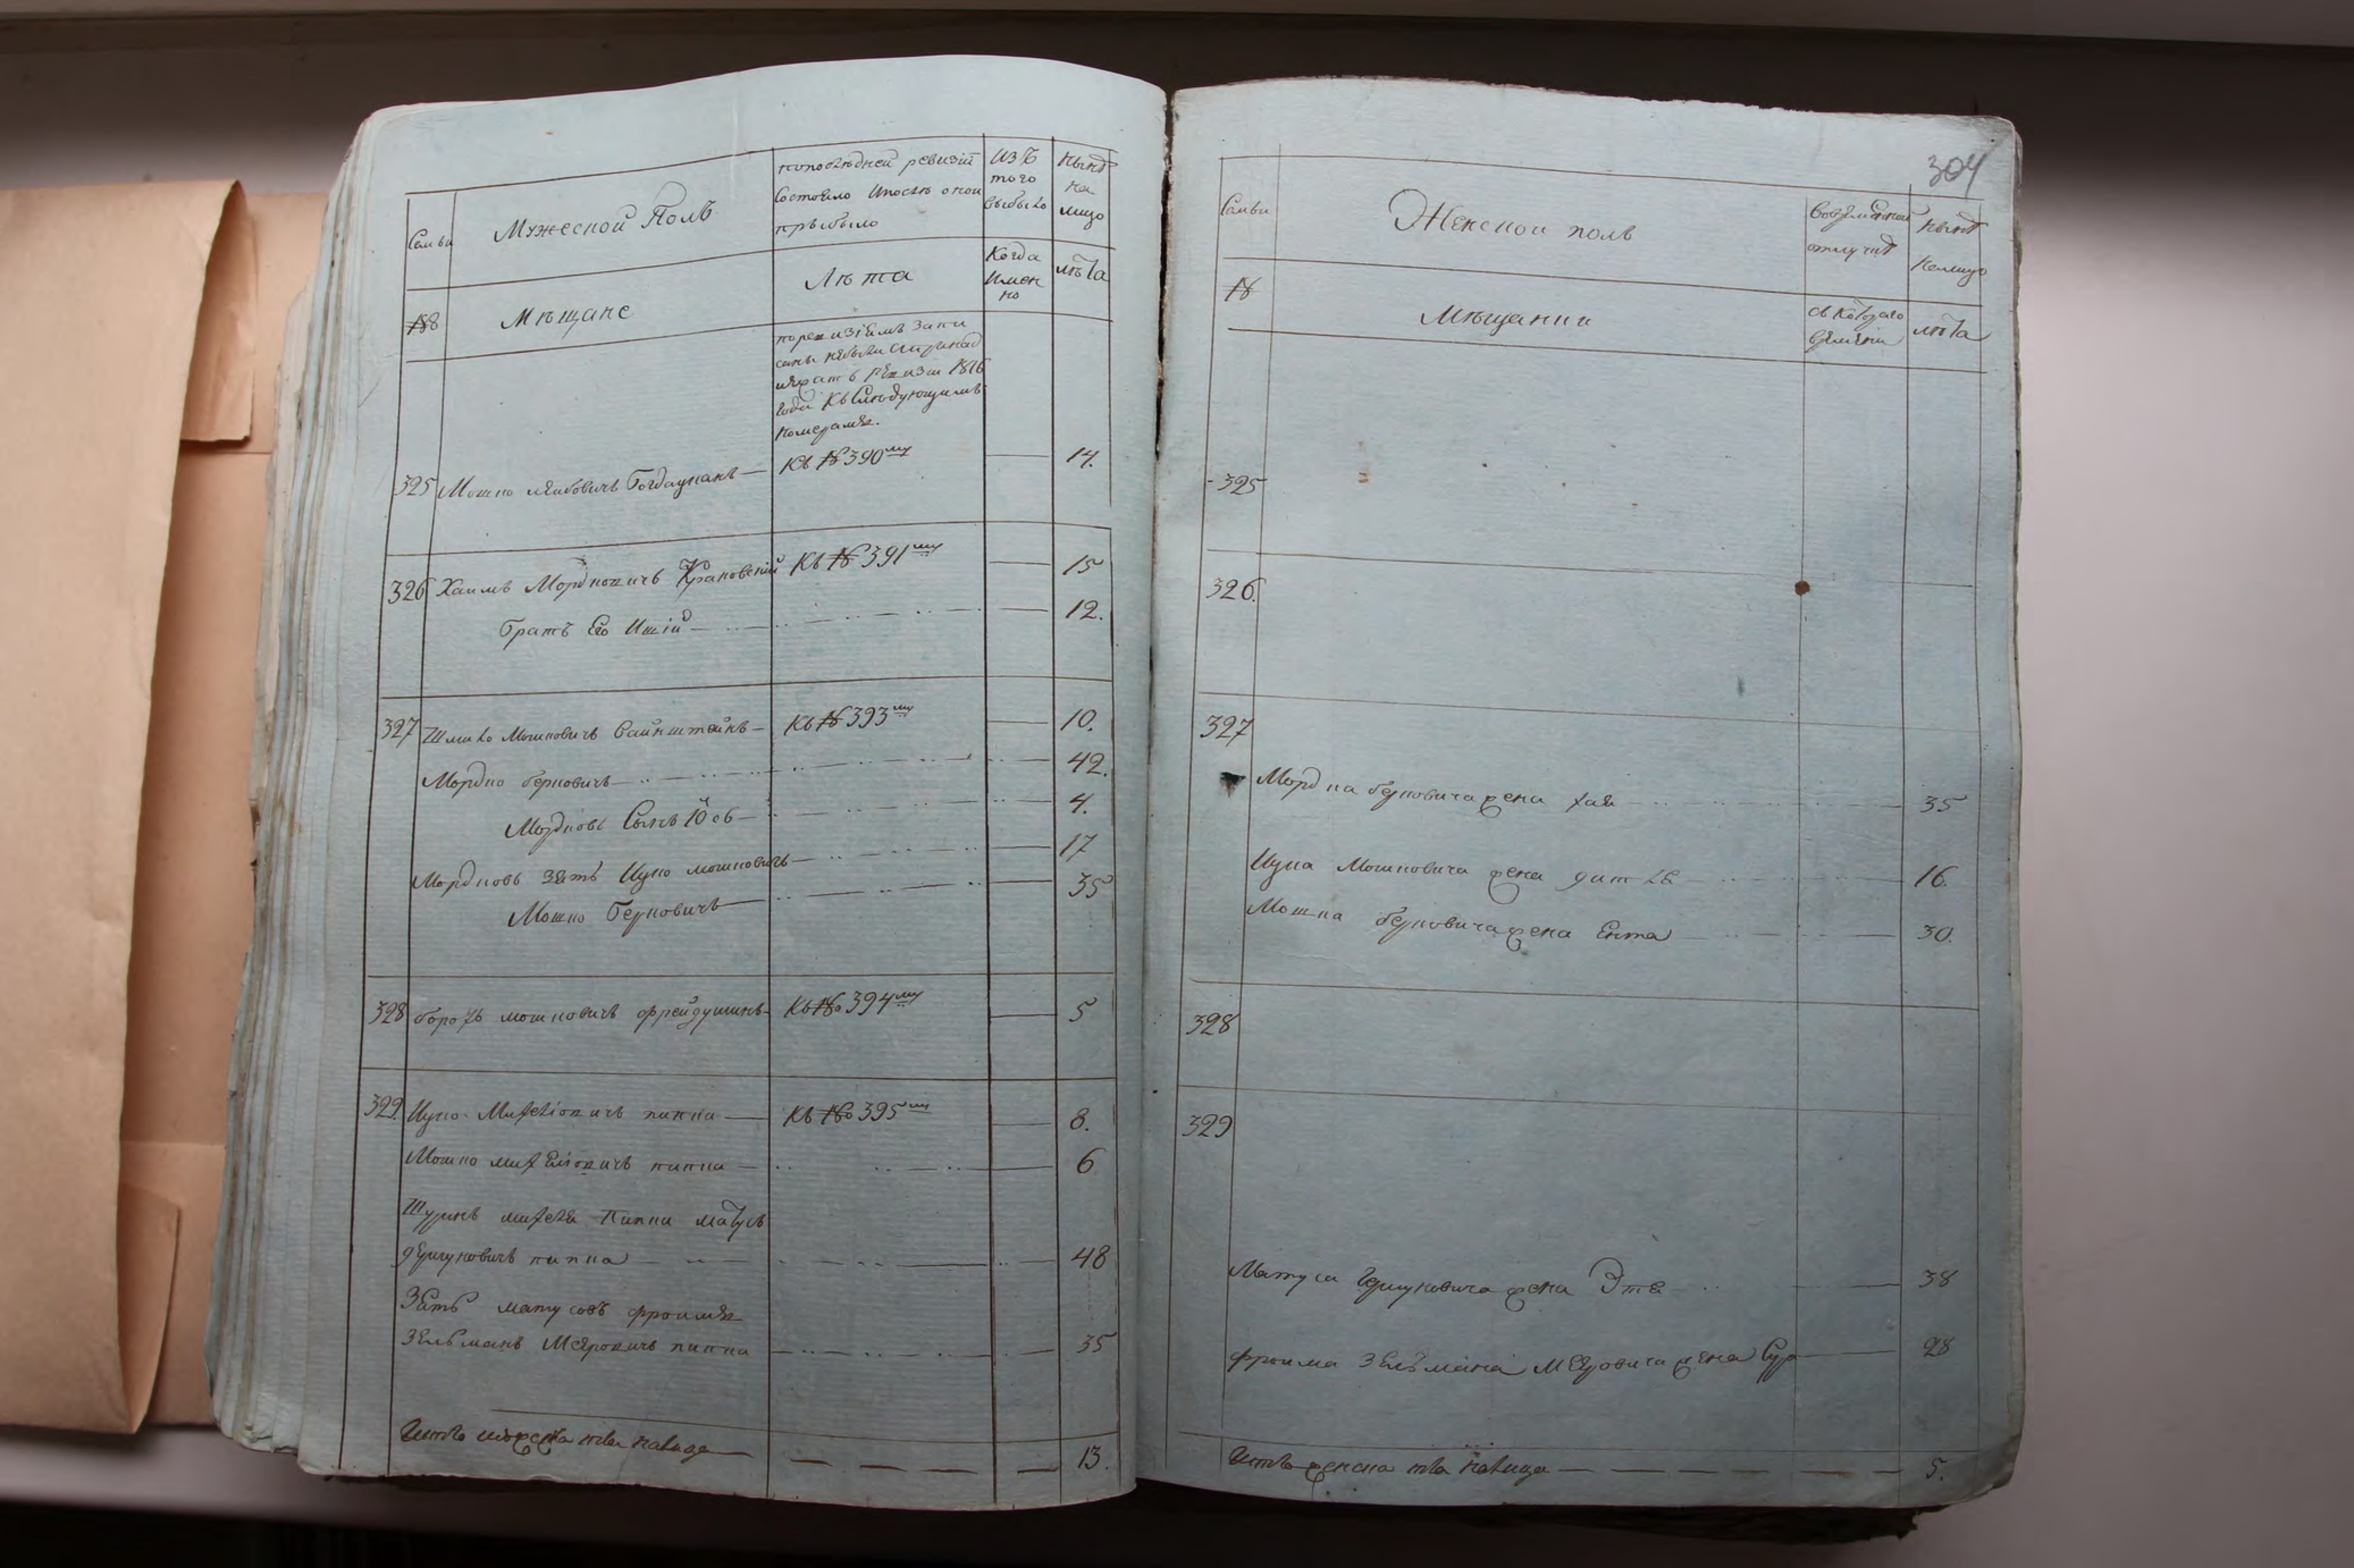 Семьи
Мужеской Полъ
попослѣдней ревизіи
Состояло Ипослѣ онои
прибыло
Изъ
того
выбыло
Нынѣ
на
лицо
№8
Мѣщане
Лѣта
Когда
Имен
но
лѣта
поревизіямъ запи
саны небыли апринад
лежатъ ревизіи 1816
года Къ Слѣдующимъ
Номерамъ.
325 Мошко Лейбовичъ Богдацкакъ — Къ № 390му — 14.
326 Хаимъ Мордковичъ Краковскій Къ № 391му — 15
братъ Его Ицій — 12.
327 Шмило Мошковичъ Вайнштейнъ — Къ № 393му — 10.
Мордко берковичъ — 42.
Мордковъ Сынъ Іосъ — 4.
Мордковъ зять Ицко мошковичъ — 17
Мошко Берковичъ — 35
328 борохъ мошковичъ фрейдушинъ — Къ № 394му — 5
329. Ицко Михеліовичъ пипка — Къ № 395му — 8.
Мошко михеліовичъ пипка — 6
Шуринъ михеля Пипки матусъ
Гершковичъ пипка — 48
Зять матусовъ фроимъ
Зельманъ Меeровичъ пипка — 35
Итого мужеска пола налице — 13.
304
Семьи
Женской полъ
Вовременной
отлучкѣ
Нынѣ
Налицо
№
Мѣщанки
съ Котораго
времени
лѣта
325
326.
327
Мордка берковича жена хая — 35
Ицка Мошковича жена гитля — 16.
Мошка берковича жена Ента — 30.
328
329
Матуса Гершковича жена Этя — 38
фроима Зельмана Мееровича жена Сура — 28
Итого женска пола налице — 5.